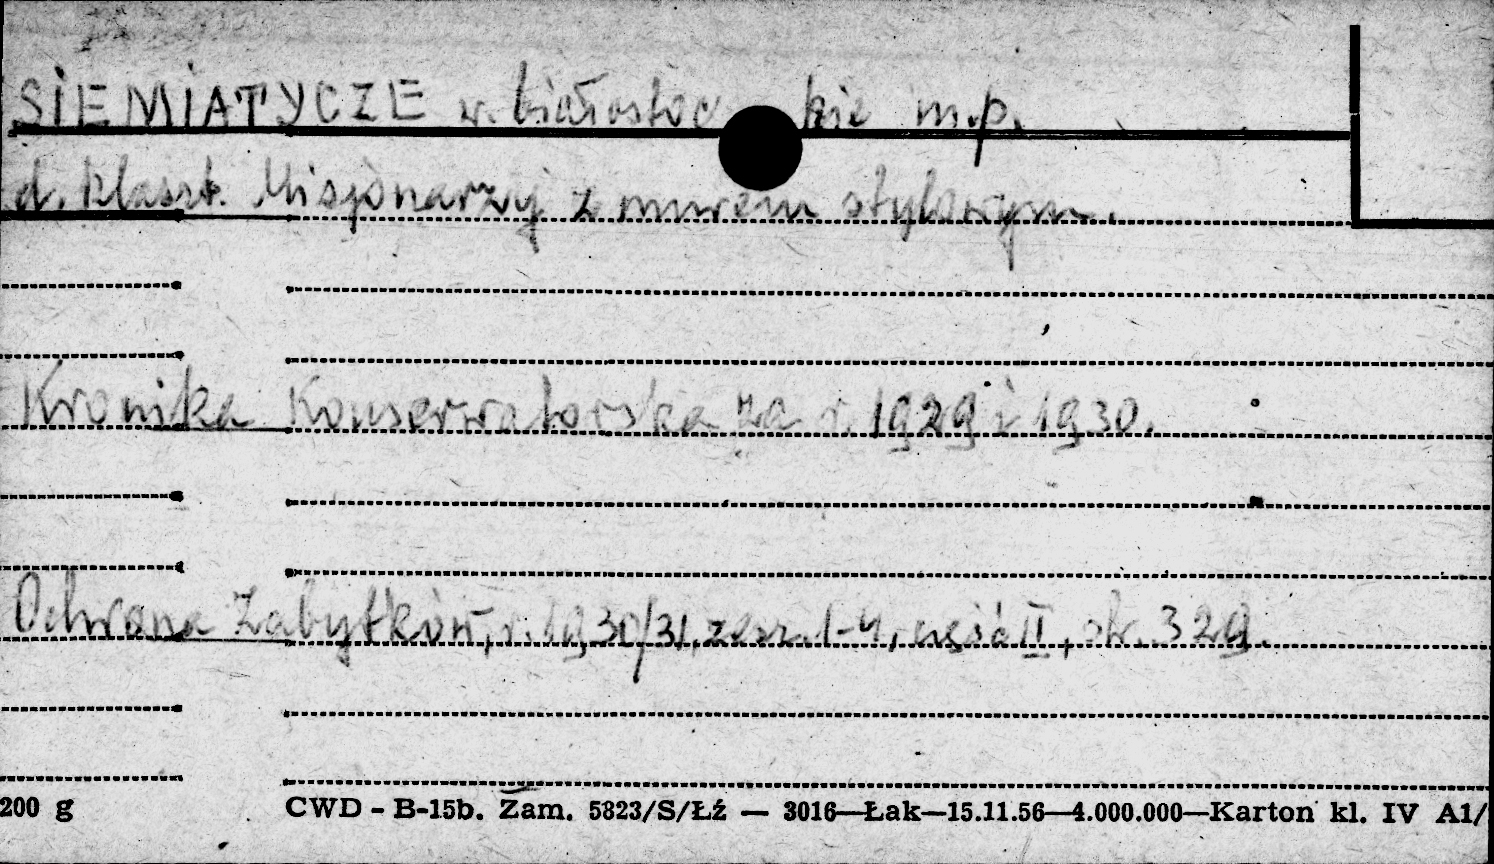 SIEMIATYCZE w. białostoc kie m.p.
d. klaszt. Misjonarzy z murem stylowym.
Kronika Konserwatorska za r. 1929 i 1930.
Ochrona Zabytków, r. 1930/31, zesz. 1-4, część II, str. 329.
200 g CWD - B-15b. Zam. 5823/S/Łź — 3016—Łak—15.11.56—4.000.000—Karton kl. IV A1/